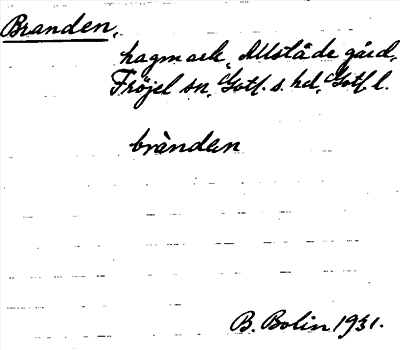 Branden,
hagmark, Mulstäde gård,
Fröjel sn, Gotl. s. hd, Gotl. l.
brànden
B. Bolin 1931.